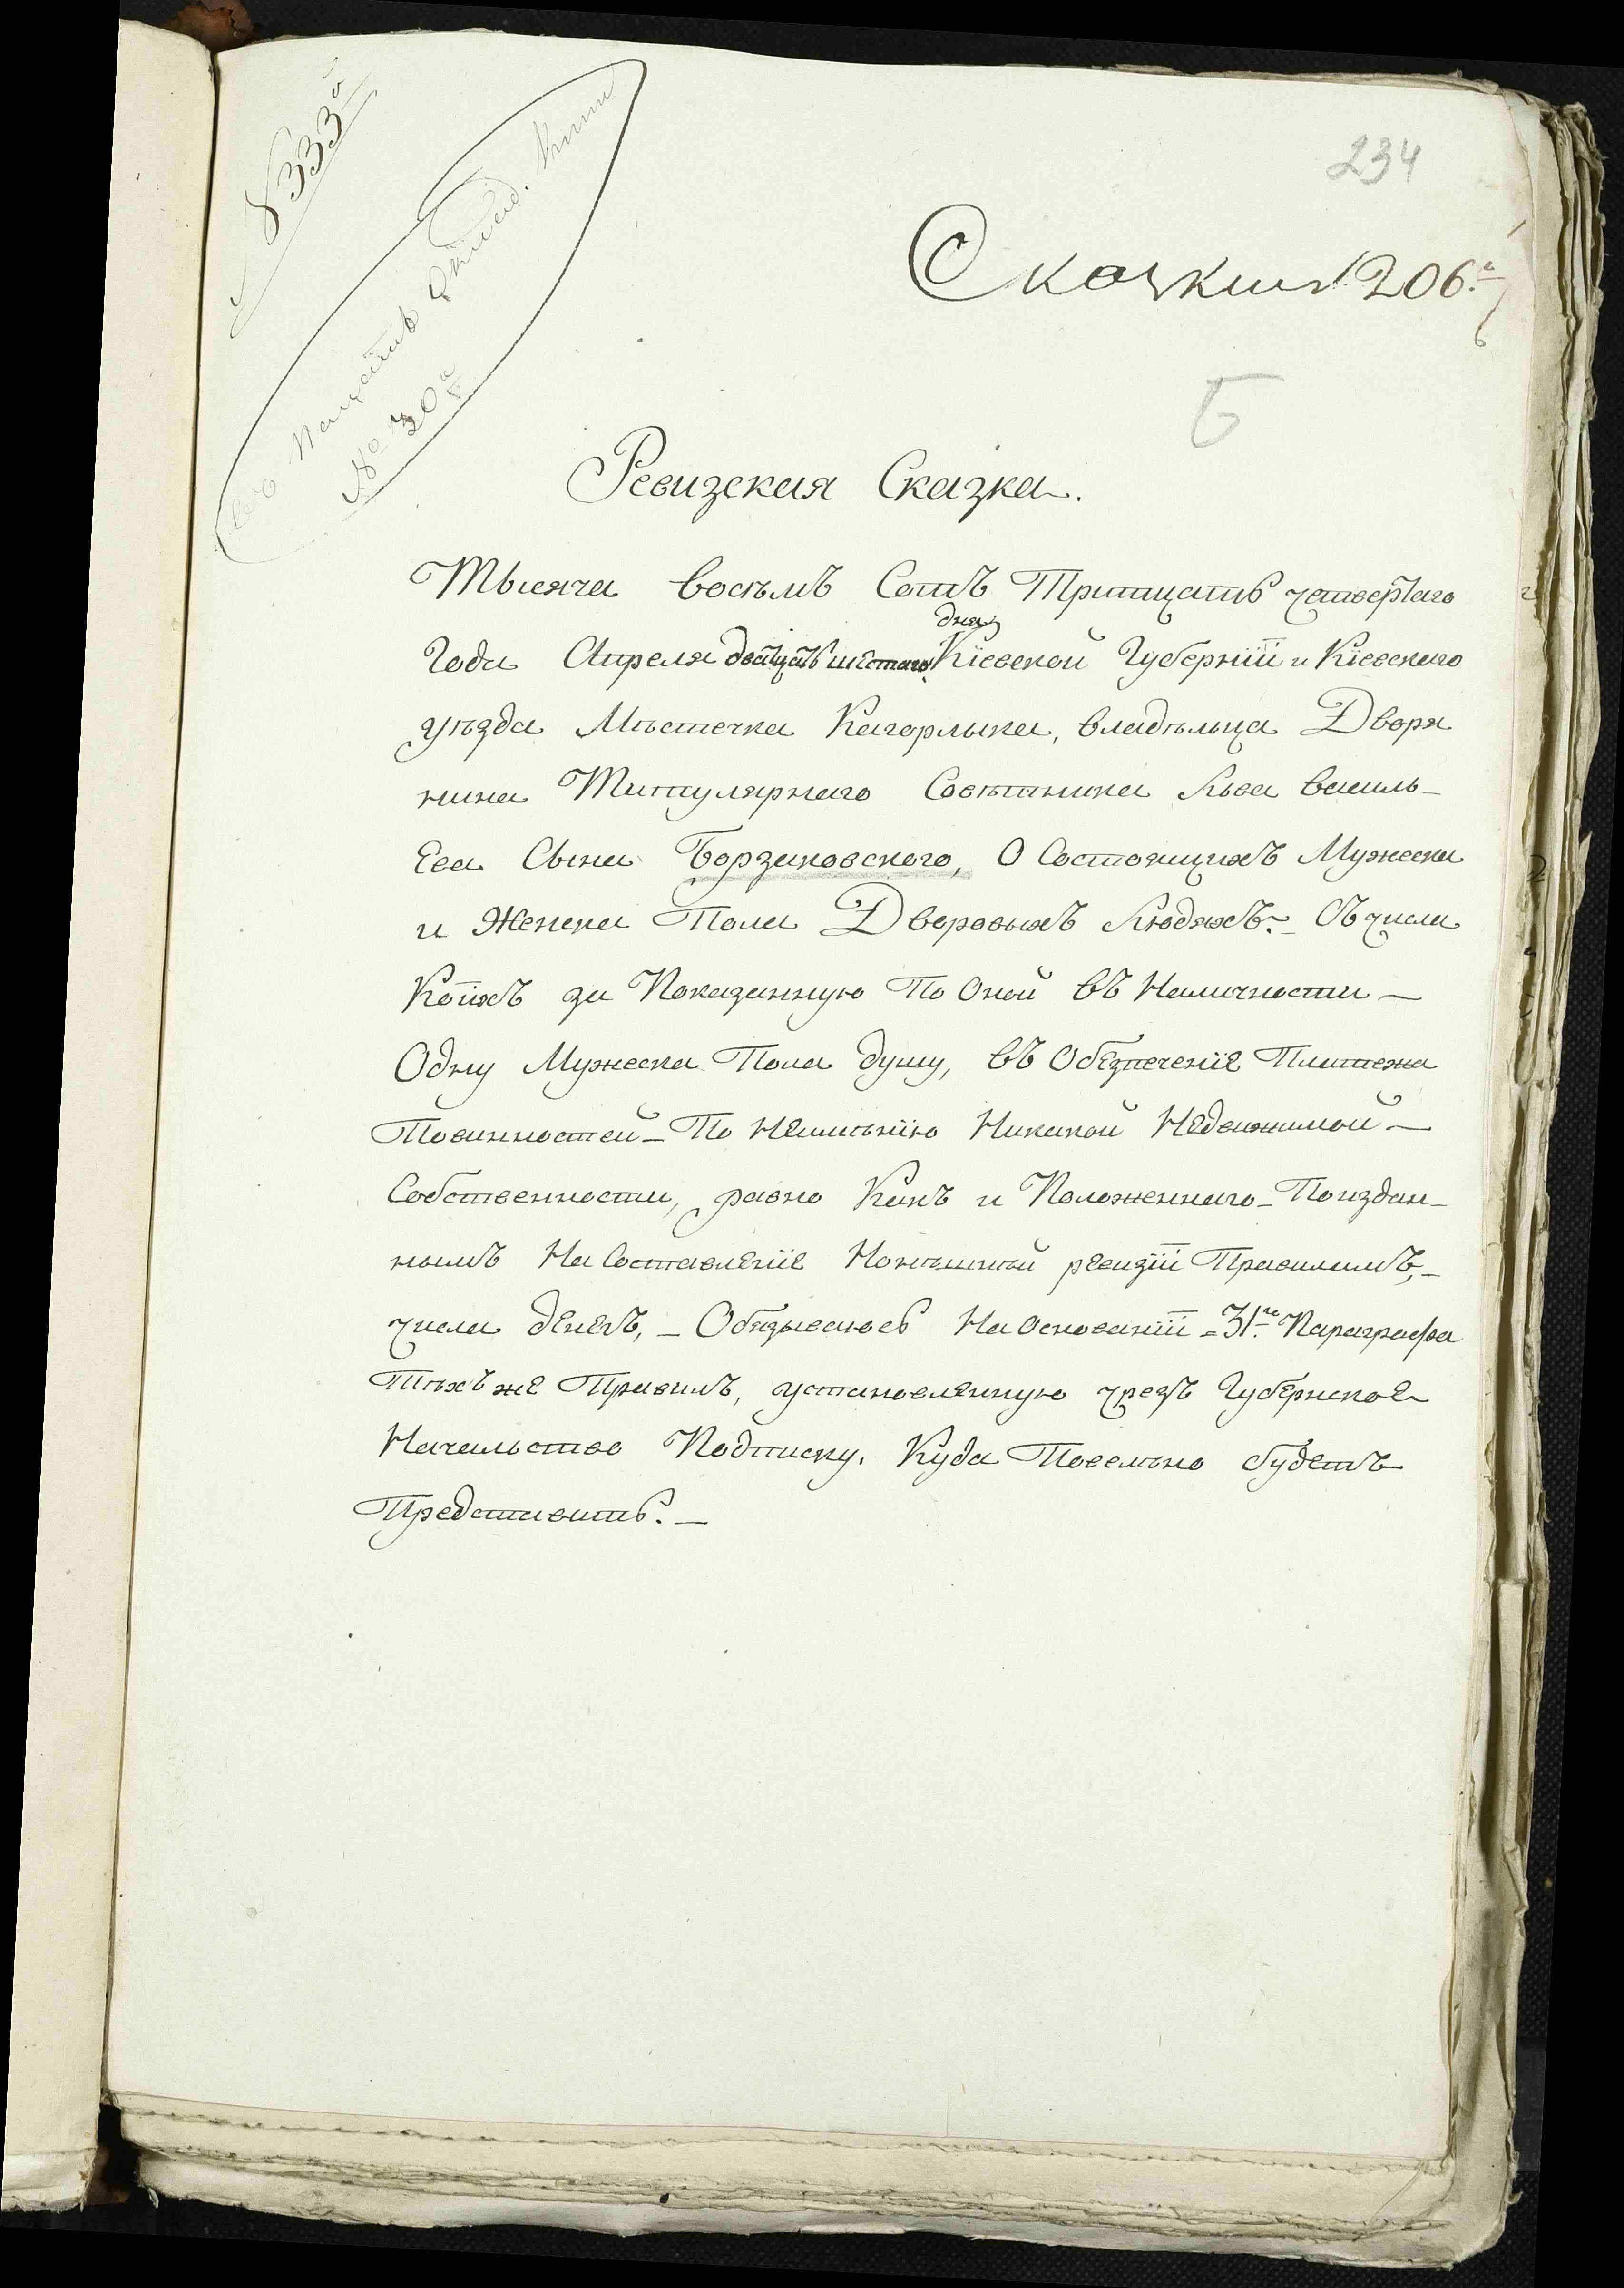 № 333й
№ 30й
234
Сказкии № 206й
Б
Ревизская Сказка.
Тысяча восѣмъ Сотъ Тритцать четвертаго
дня
Года Апреля дватцать шестаго Кіевской Губерніи и Кіевскаго
уѣзда Мѣстечка Кагорлыка, владѣльца Дворя
нина Титулярнаго Совѣтника Льва Василь-
ева Сына Борзаковского, О Состоящихъ Мужеска
и Женска Пола Дворовыхъ Людяхъ. – Съ числа
Коихъ за Показанную По Оной въ Наличности –
Одну Мужеска Пола душу, въ Обезпеченіе Платежа
Повинностей – По Неимѣнію Никакой Недвижимой –
Собственности, равно Какъ и Положеннаго – По издан-
нымъ На Составленіе Нонѣшней ревизіи Правиламъ, –
числа денегъ, – Обязываюсь На Основаніи = 31го Параграфа
Тѣхъ же Правилъ, установленную чрезъ Губернское
Начальство Подписку, Куда Повелѣно будетъ
Представить. –